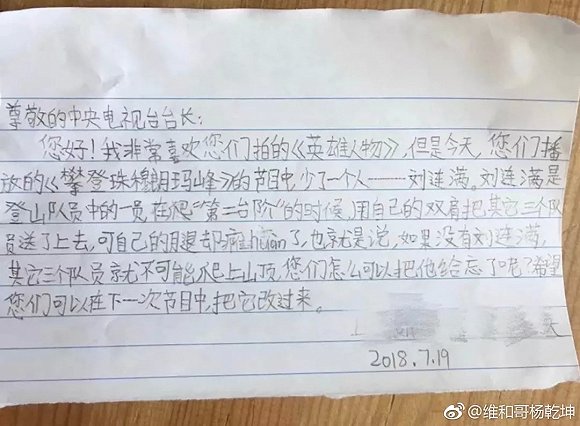 尊敬的中央电视台台长:
您好!我非常喜欢您们拍的《英雄人物》,但是今天,您们播
放的《攀登珠穆朗玛峰》的节目中,少了一个人——刘连满。刘连满是
登山队员中的一员,在爬“第二台阶”的时候,用自己的双肩把其它三个队
员送了上去,可自己的腿却瘫huan了,也就是说,如果没有刘连满,
其它三个队员就不可能爬上山顶,您们怎么可以把他给忘了呢?希望
您们可以在下一次节目中,把它改过来。
2018.7.19
@维和哥杨乾坤